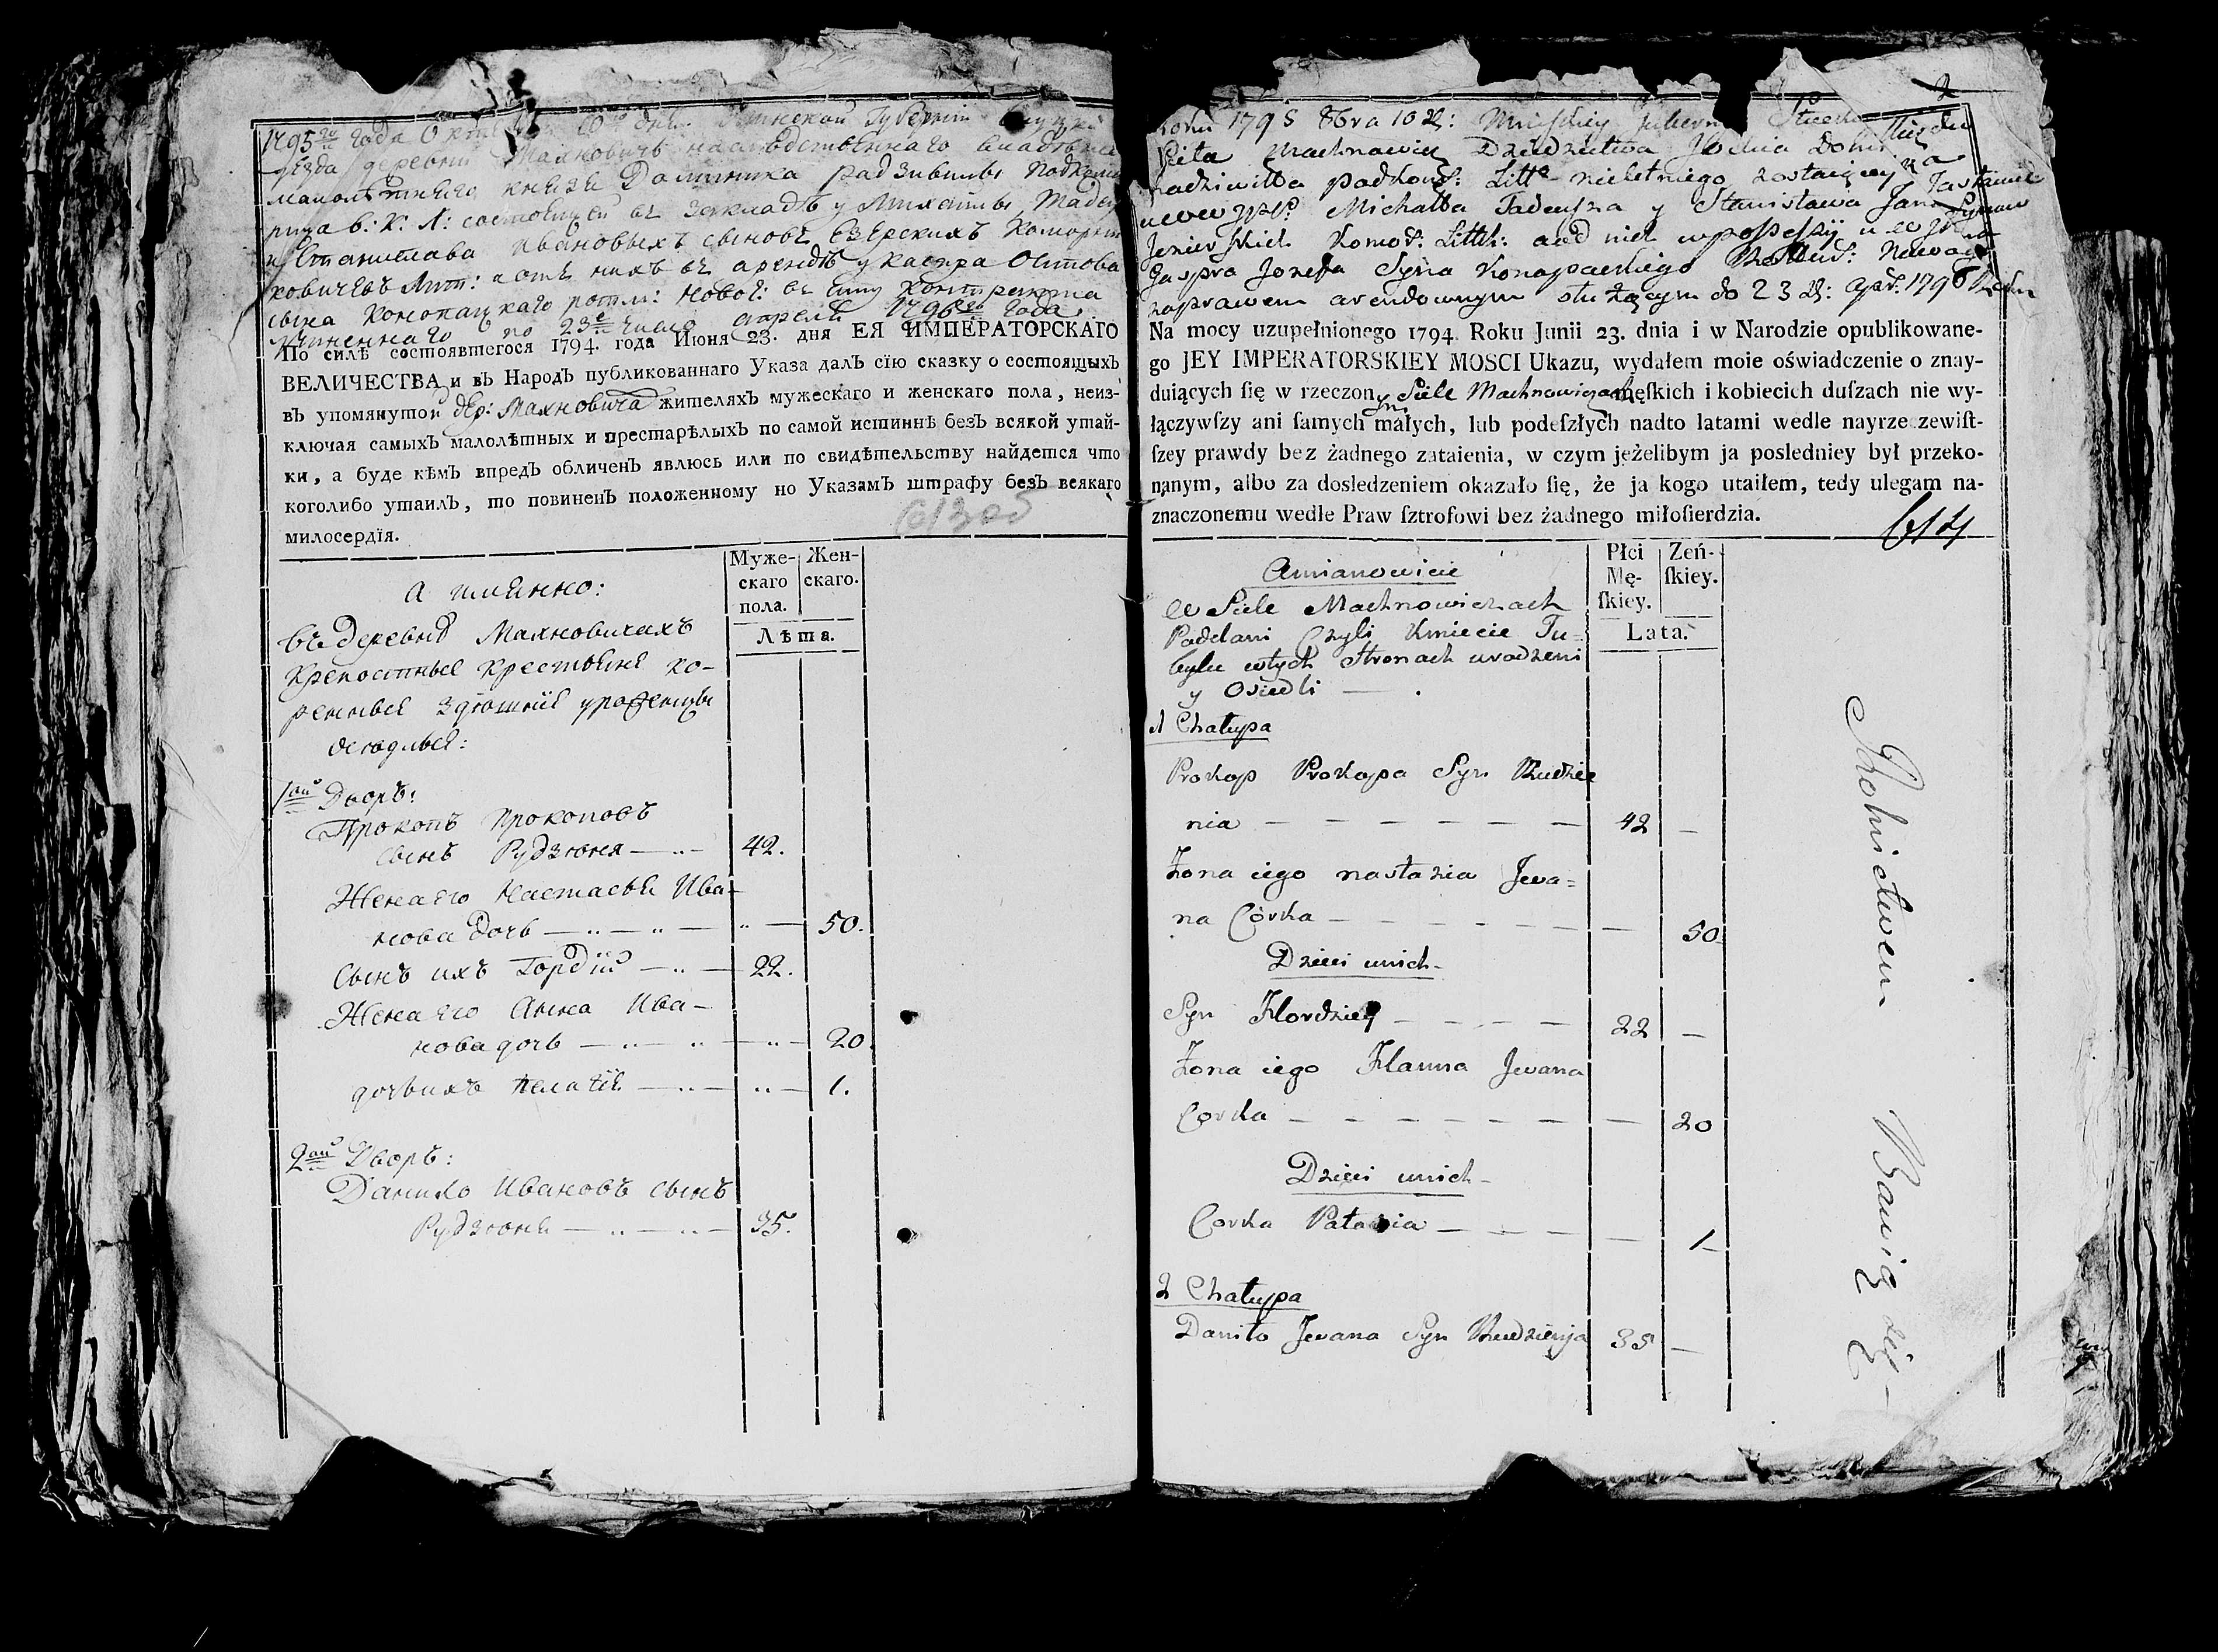 1795го года Окт 10го дня Минской Губернии Слуцк
уезда деревни Махновичъ наследственнаго владѣнія
малолѣтнего князя Доминика Радзивила Подкомо
рица в: К: Л: состоящей въ закладѣ у Михаила, Тадеу
и Станислава Ивановыхъ сыновъ Езерскихъ Коморни
ковичевъ Лит: а отъ нихъ въ арендѣ у Каспра Осипова
сына Конопацкаго ротм: Новог: въ силу контракта
по 23е число апреля 1796го года
По силѣ состоявшегося 1794. года Июня 23. дня ЕЯ ИМПЕРАТОРСКАГО
ВЕЛИЧЕСТВА и въ Народъ публикованнаго Указа далъ сїю сказку о состоящыхъ
въ упомянутой дер: Махновича жителяхъ мужескаго и женскаго пола, неиз-
ключая самыхъ малолѣтных и престарѣлыхъ по самой истиннѣ безъ всякой утай-
ки, а буде кѣмъ впредь обличенъ явлюсь или по свидѣтельству найдется что
коголибо утаилъ, то повиненъ положенному по Указамъ штрафу безъ всякаго
милосердїя.
Муже-
скаго
пола.
Жен-
скаго.
Лѣта.
а имянно:
въ деревнѣ Махновичахъ
Крепостные крестьяне ко-
ренные здѣшніе уроженцы
оседлые:
1ый Дворъ:
Прокопъ Прокоповъ
сынъ Рудзюня — 42.
Жена его Настасья Ива-
нова дочь — 50.
Сынъ ихъ Гордій — 22.
Жена его Анна Ива-
нова дочь — 20
дочь ихъ Пелагія — 1.
2ой Дворъ:
Данило Ивановъ сынъ
Рудзюня — 35.
2
Roku 1795 8bra 10 D: Minskiey Gubernii Słuckie
Sieła Machnowicz Dziedzictwa Domi
Radziwiłła podkom: Litt: nieletniego zostaiącey za
Michałła Tadeusza y Stanisława Jana Synow
Jezierskich Komor: Litth: a od nich w possesyi
Gaspra Jozefa Syna Konopackiego Rottm: Nowog:
za prawem arendownym służącym do 23 D: Apr: 1796 Roku
Na mocy uzupełnionego 1794. Roku Junii 23. dnia i w Narodzie opublikowane-
go JEY IMPERATORSKIEY MOSCI Ukazu, wydałem moie oświadczenie o znay-
duiących ſię w rzeczonym Siele Machnowiczach męſkich i kobiecich duſzach nie wy-
łączywſzy ani ſamych małych, lub podeſzłych nadto latami wedle nayrzeczewiſt-
ſzey prawdy bez żadnego zataienia, w czym jeżelibym ja posledniey był przeko-
nanym, albo za dosledzeniem okazało ſię, że ja kogo utaiłem, tedy ulegam na-
znaczonemu wedle Praw ſztrofowi bez żadnego miłoſierdzia.
614
Płci
Mę-
ſkiey.
Zeń-
ſkiey.
Lata.
Amianowicie
w Siele Machnowiczach
Poddani Czyli Kmiecie Tu-
bylce wtych Stronach urodzeni
y Osiedli —
1 Chałupa
Prokop Prokopa Syn Rudzie
nia — 42 —
Żona iego nastazia Jwa=
na Córka — 50
Dzieci unich
Syn Hordziey — 22 —
Żona iego Hanna Jwana
Corka — 20
Dzieci unich
Corka Pałazia — 1
2 Chałupa
Daniło Jwana Syn Rudzienia 35 —